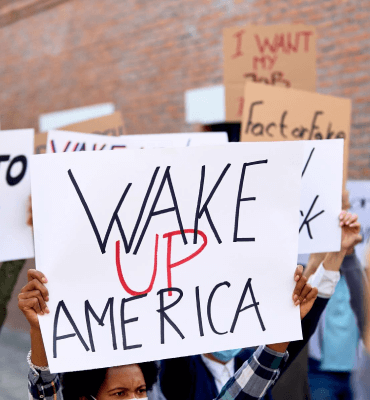 I WANT
MY
Fact or Fake
TO
WAKE
WAKE
UP
AMERICA